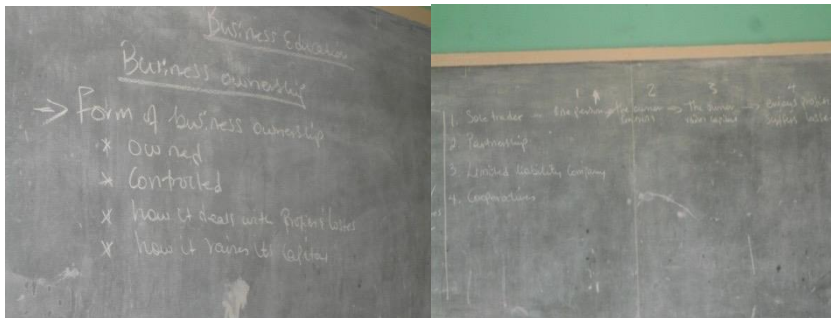 Business Education
Business ownership
→ Form of business ownership
* owned
* Controlled
* how it deals with Profit losses
* how it raises its Capital
1 2 3 4
1. Sole trader – One person → The owner → The owner → enjoys
2. Partnership
3. Limited Liability Company
4. Cooperatives